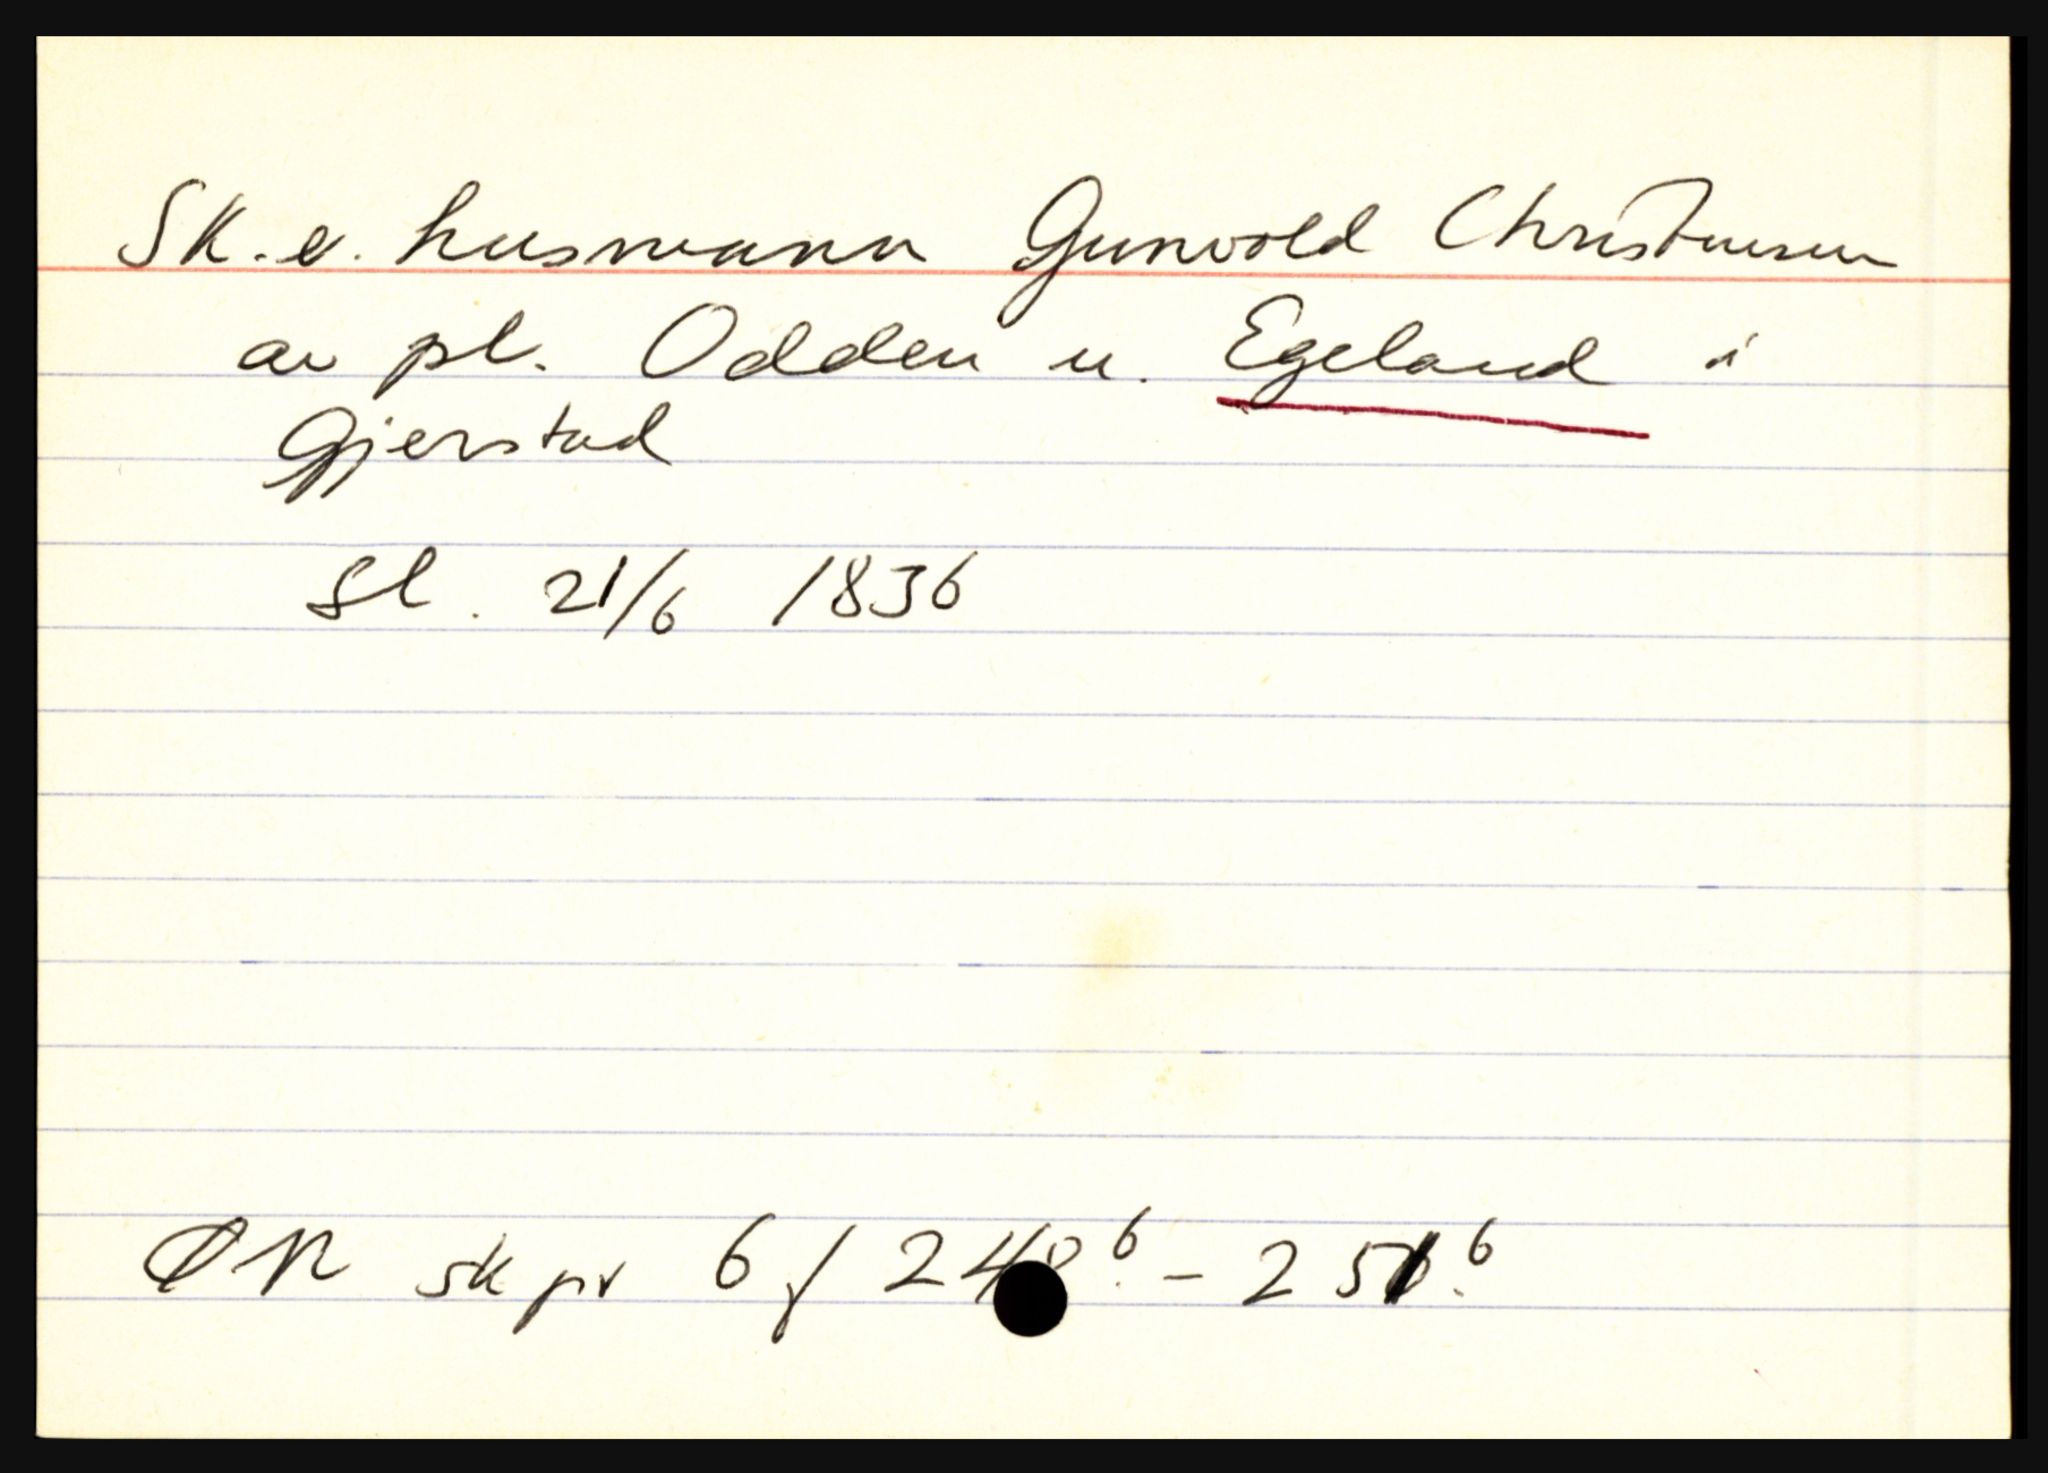 Sk. e. husmann Gunvold Christensen
av pl. Odden u. Egeland i
Gjerstad
Sl. 21/6 1836
ØN sk pr 6 / 248.6 - 251.6